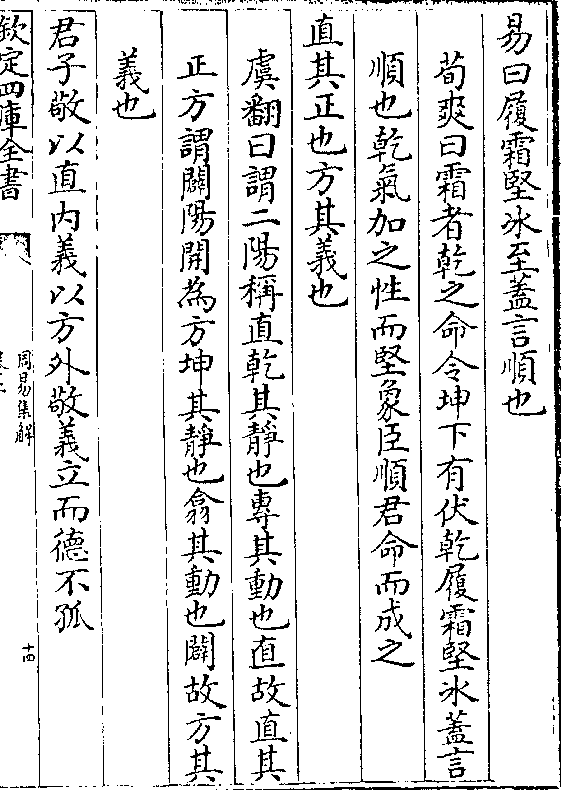 易曰履霜堅冰至蓋言順也
荀爽曰霜者乾之命令坤下有伏乾履霜堅冰蓋言
順也乾氣加之性而堅象臣順君命而成之
直其正也方其義也
虞翻曰謂二陽稱直乾其靜也專其動也直故直其
正方謂闢陽開為方坤其靜也翕其動也闢故方其
義也
君子敬以直内義以方外敬義立而德不孤
欽定四庫全書
周易集解
十四